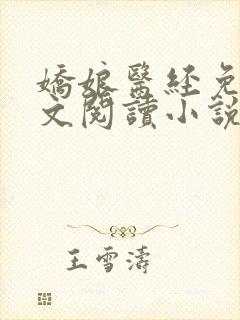 嬌娘醫经免
文閱讀小說
王雪濤